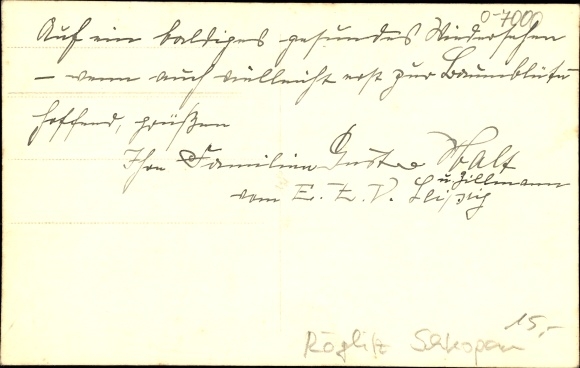 0-7000
Auf ein baldiges gesundes Wiedersehen
– wenn auch vielleicht erst zur Baumblüte –
hoffend, grüßen
Ihre Familien Gust Walt
u. Zillmann
vom E. Z. V. Leipzig
15,-
Röglitz Schkopau